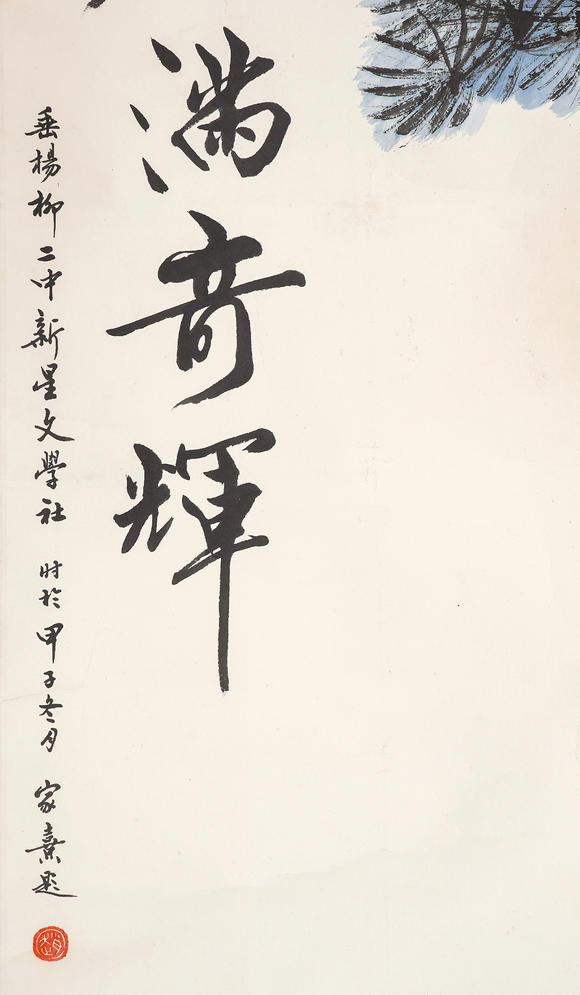 满竒輝
垂楊柳二中新星文學社 时於甲子冬月 家熹题